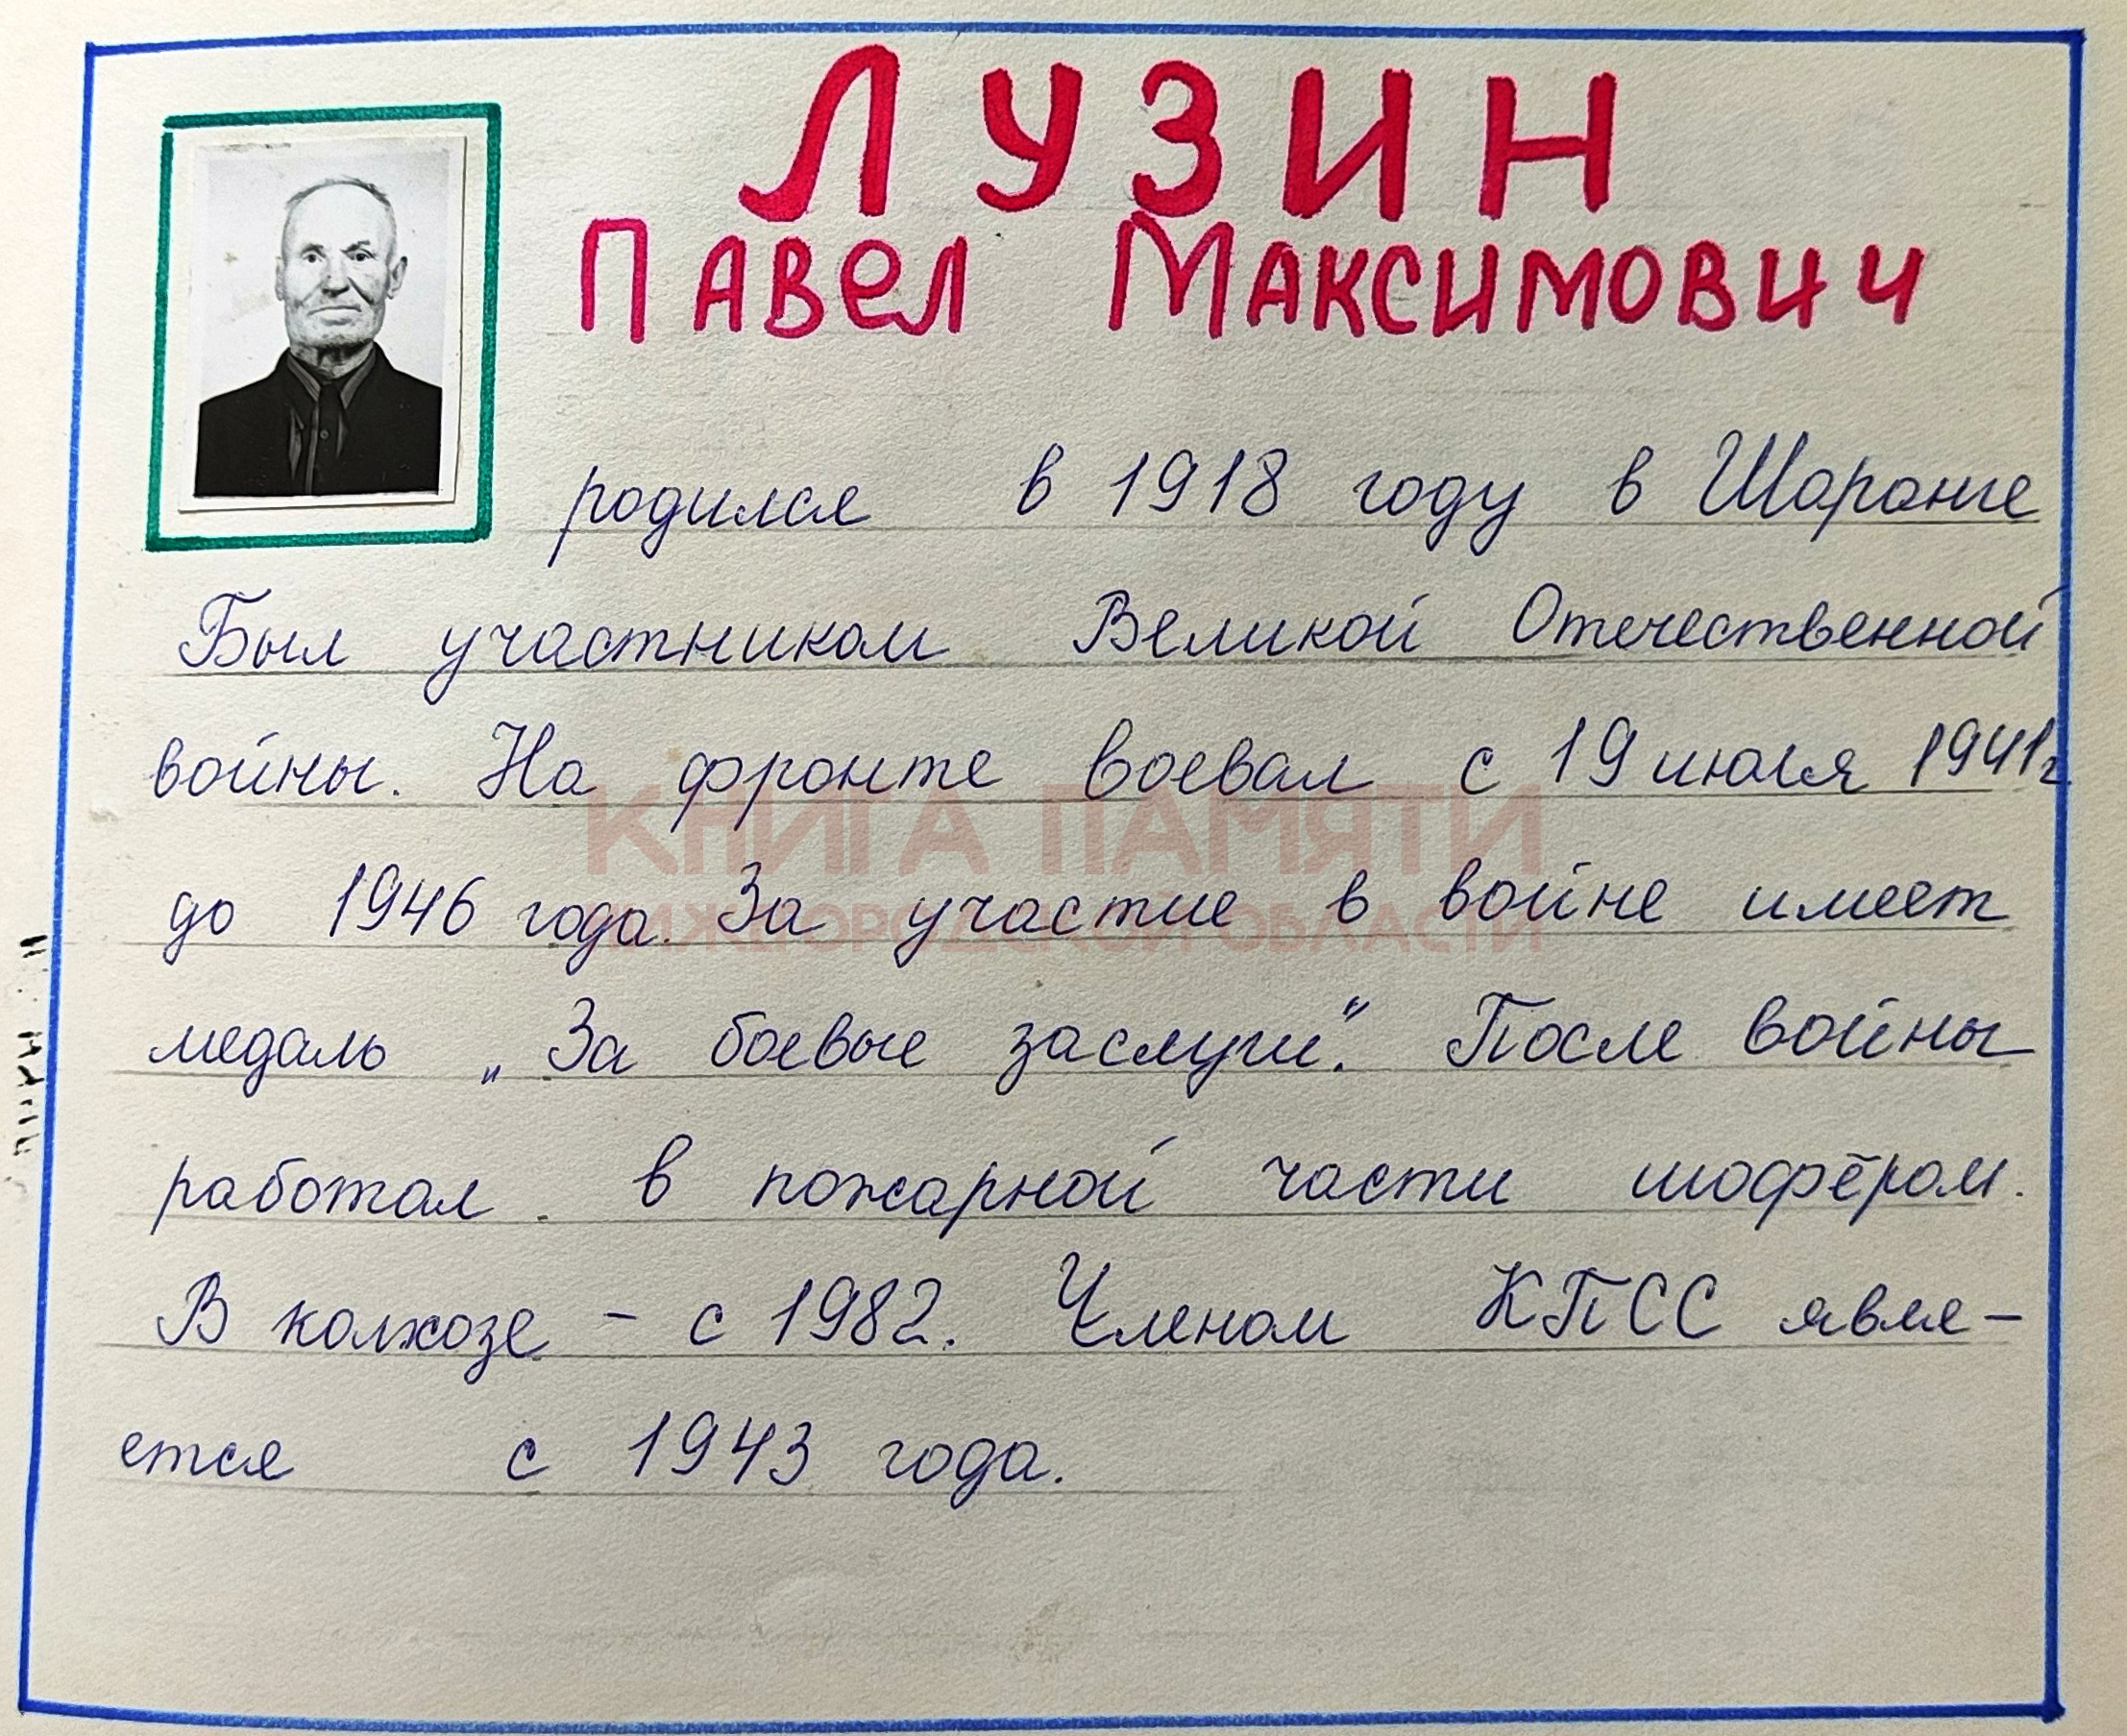 ЛУЗИН
ПАВЕЛ МАКСИМОВИЧ
родился в 1918 году в Шаранге
Был участником Великой Отечественной
войны. На фронте воевал с 19 июля 1941г.
до 1946 года. За участие в войне имеет
медаль „За боевые заслуги”. После войны
работал в пожарной части шофёром.
В колхозе – с 1982. Членом КПСС явля–
ется с 1943 года.
КНИГА ПАМЯТИ
НИЖЕГОРОДСКОЙ ОБЛАСТИ